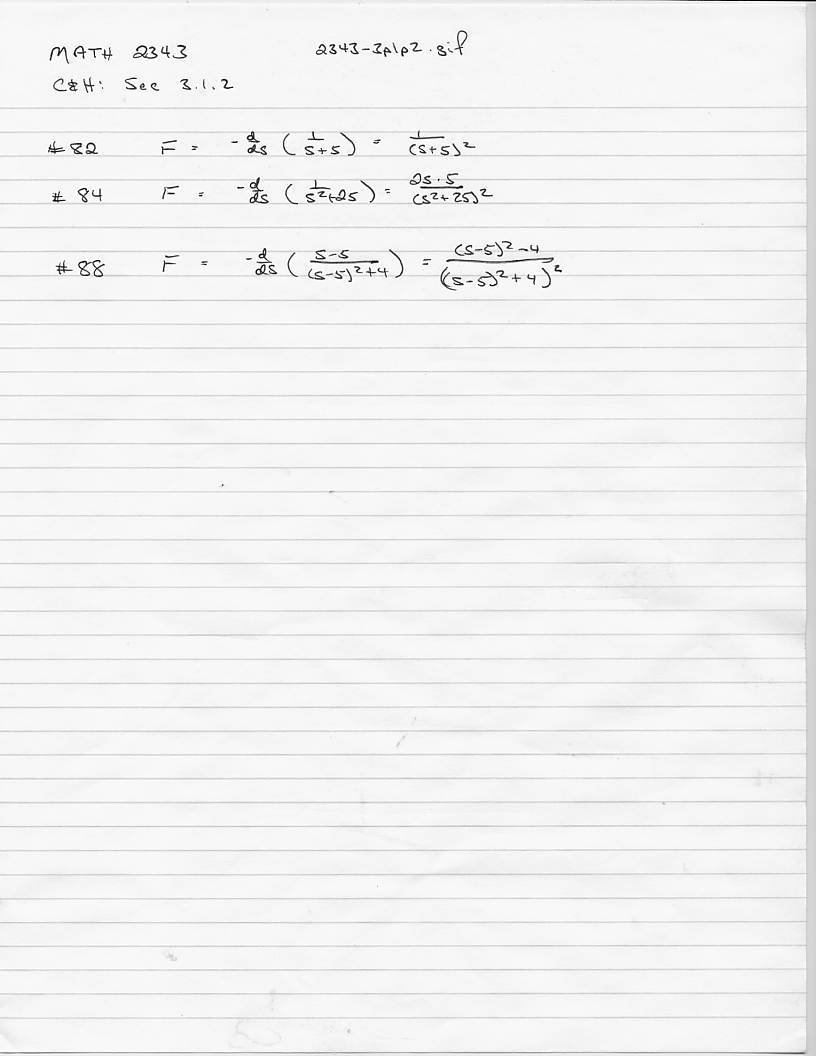 MATH 2343 2343-3p1p2.gif
C&H: Sec 3.1.2
#82 F = -d/ds (1/(s+5)) = 1/(s+5)²
#84 F = -d/ds (1/(s²+25)) = 2s·5/(s²+25)²
#88 F = -d/ds ((s-5)/((s-5)²+4)) = ((s-5)²-4)/((s-5)²+4)²